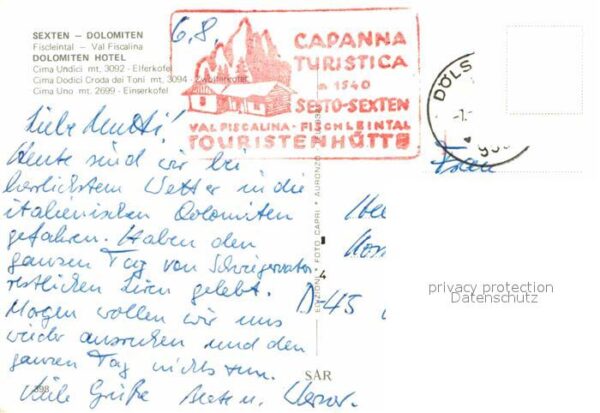 SEXTEN – DOLOMITEN
Fiscleintal – Val Fiscalina
DOLOMITEN HOTEL
Cima Undici mt, 3092 - Elferkofel
Cima Dodici Croda dei Toni mt, 3094 - Zwölferkofel
Cima Uno mt. 2699 - Einserkofel
6.8.
CAPANNA
TURISTICA
m 1540
SESTO-SEXTEN
VAL FISCALINA - FISCHLEINTAL
TOURISTENHÜTTE
DÖLS
Liebe Mutti!
Heute sind wir bei
herrlichstem Wetter in die
italienischen Dolomiten
gefahren. Haben den
ganzen Tag von Schwiegervaters
restlichen Liren gelebt.
Morgen wollen wir uns
wieder ausruhen und den
ganzen Tag nichts tun.
Viele Grüße
Frau
D-45
EDIZIONI * FOTO CAPRI * AURONZO
4
SAR
398
privacy protection
Datenschutz